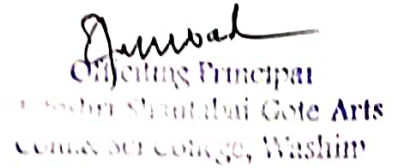 Officiating Principal
Shantabai Gote Arts
Com.& Sci College, Washim